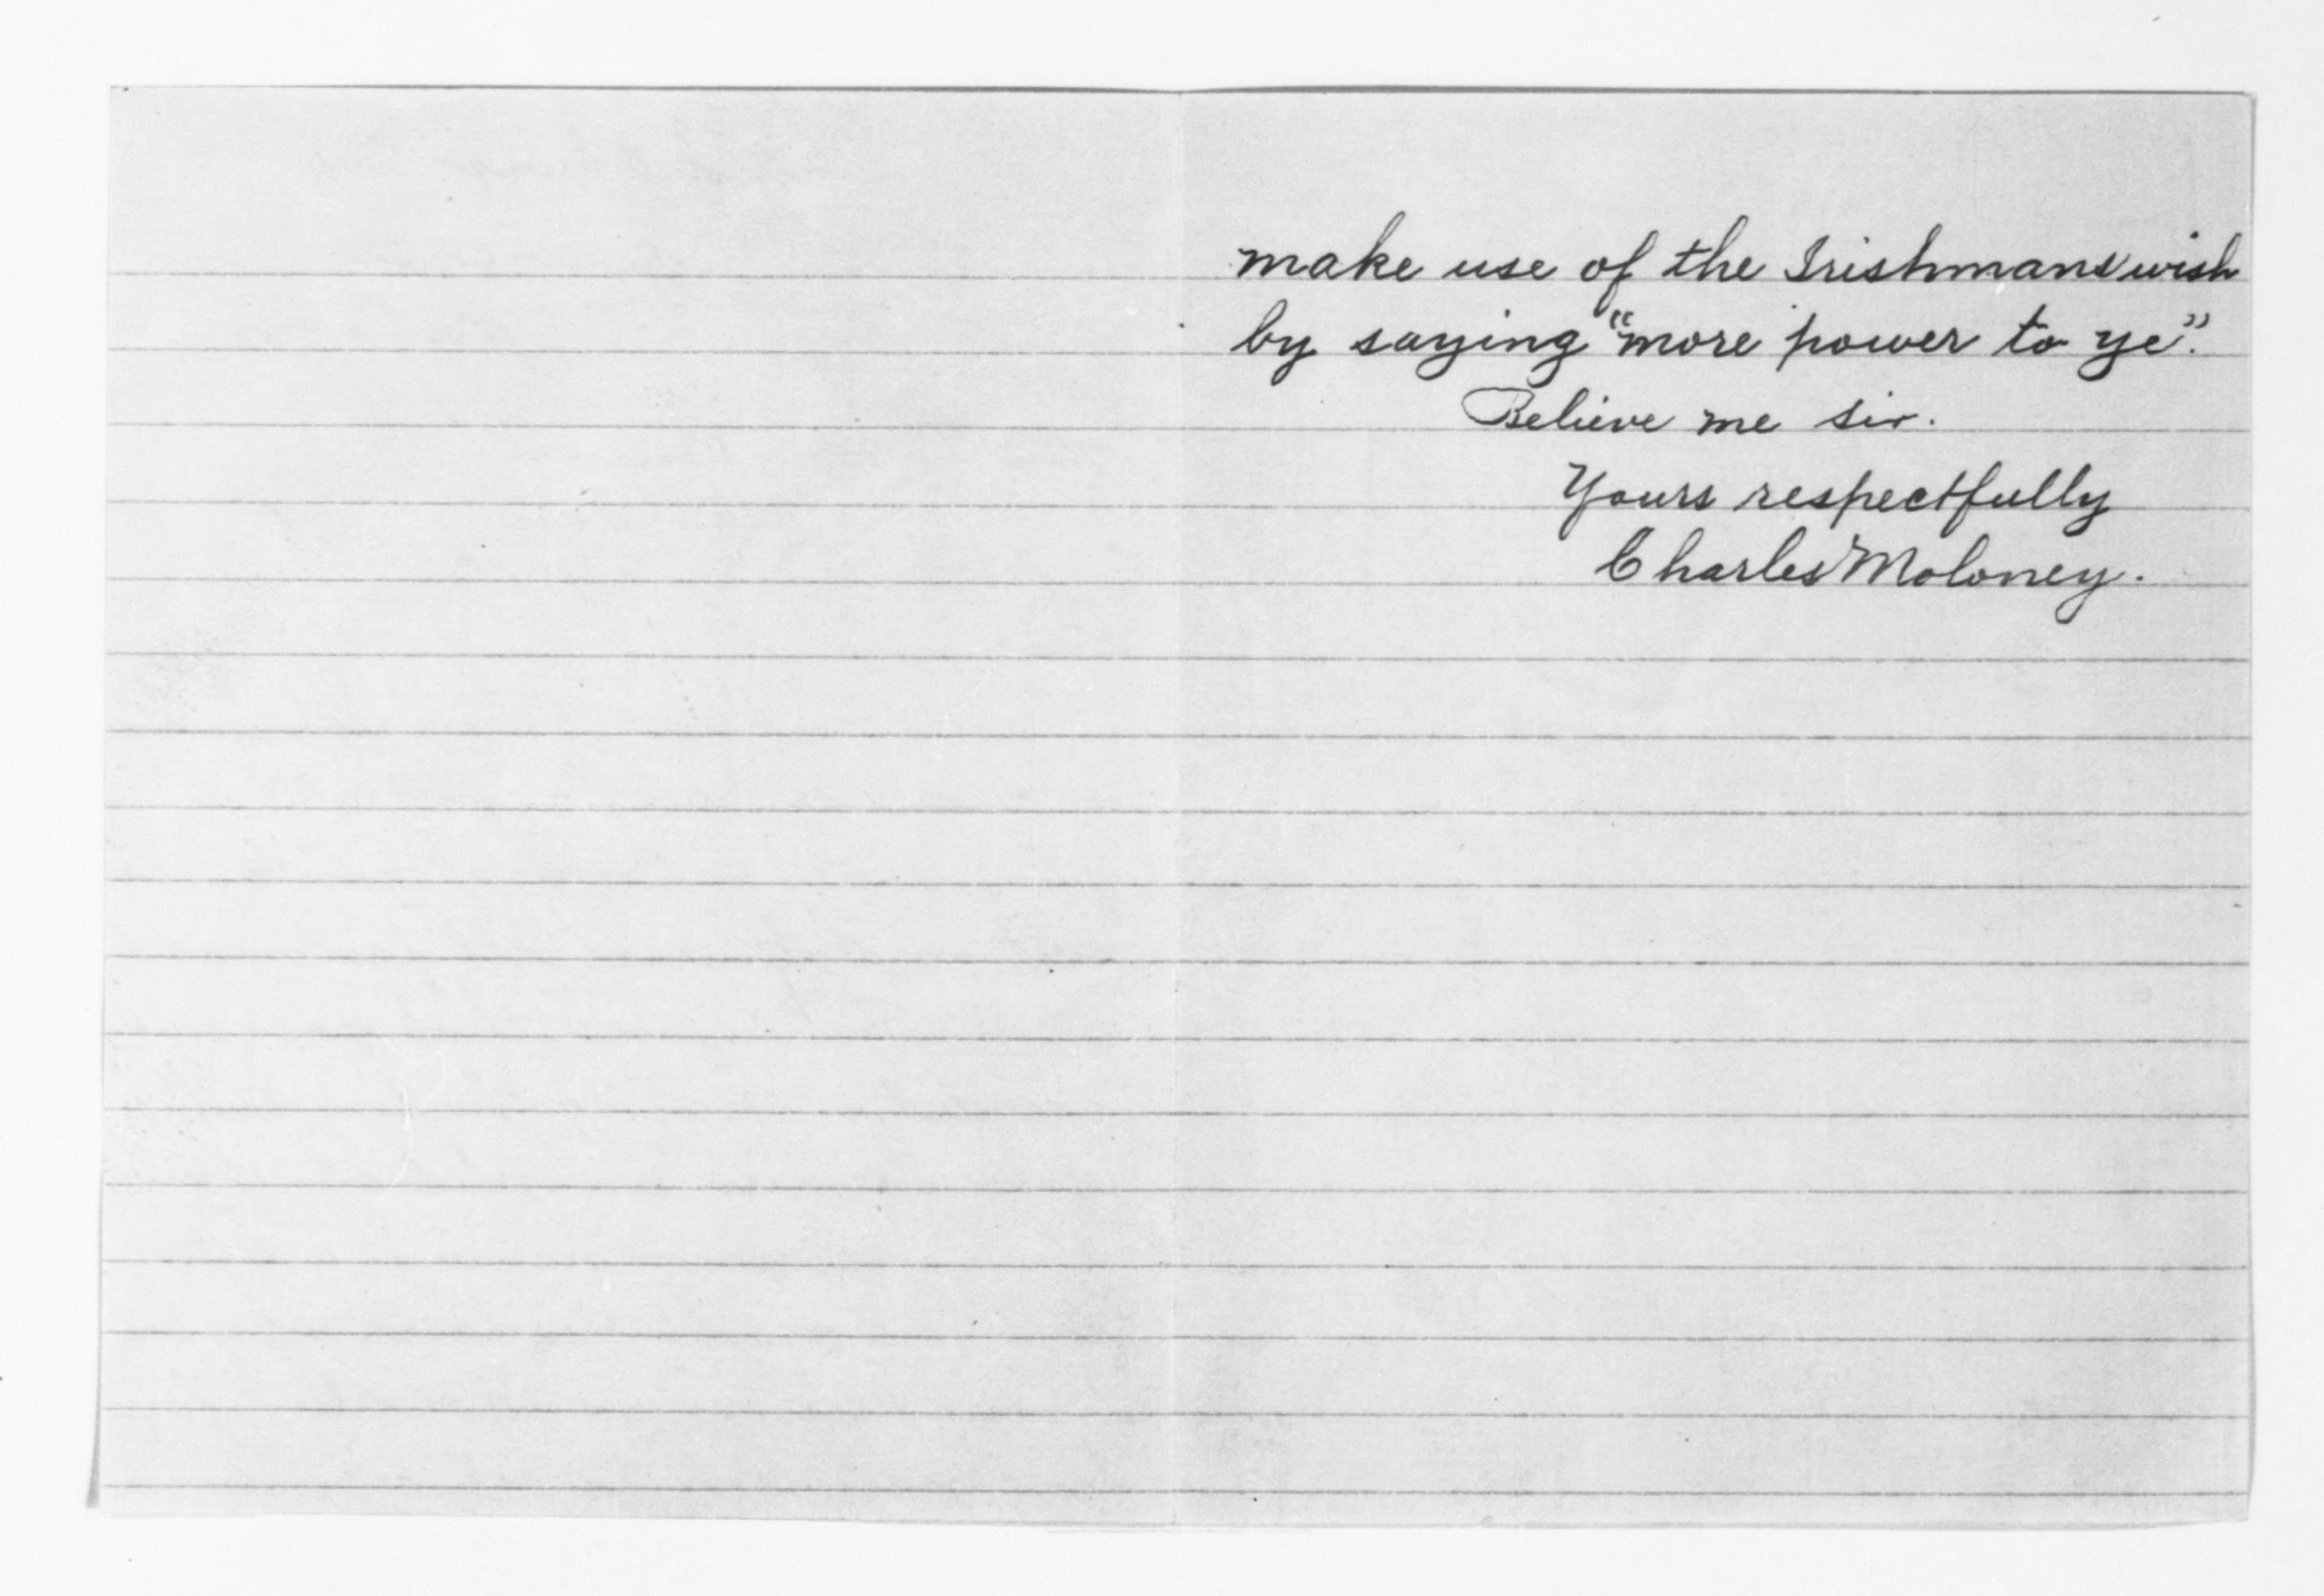 make use of the Irishmans wish
by saying "more power to ye".
Believe me sir.
Yours respectfully
Charles Moloney.